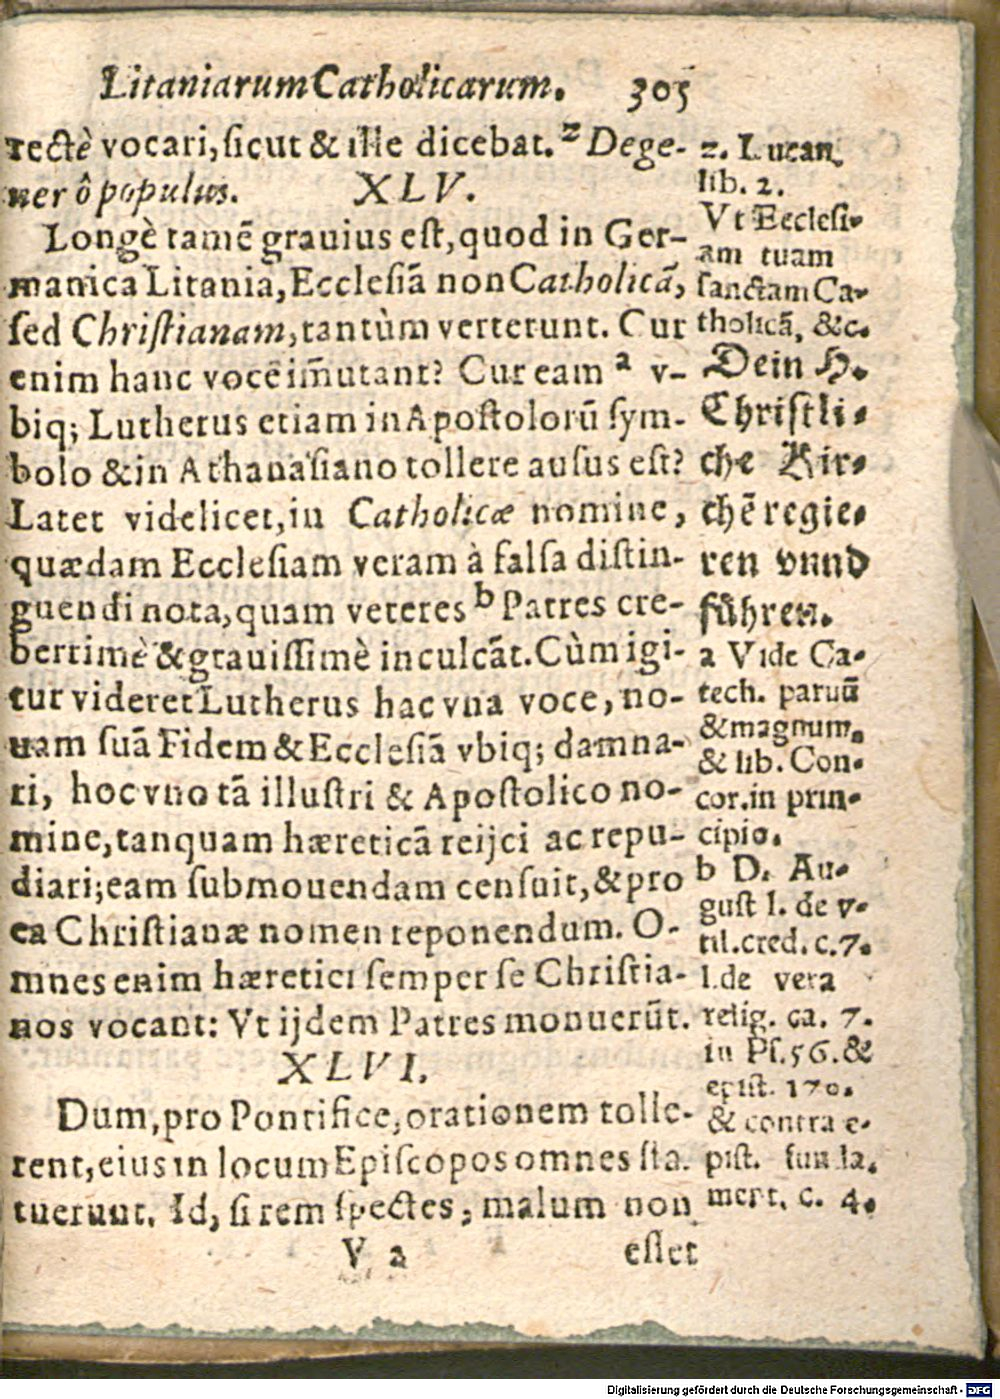 Litaniarum Catholicarum. 305
rectè vocari, sicut & ille dicebat. z Dege-
ner ô populus. XLV.
Longè tamē grauius est, quod in Ger-
manica Litania, Ecclesiā non Catholicā,
sed Christianam, tantùm verterunt. Cur
enim hanc vocē im̄utant? Cur eam a v-
biq; Lutherus etiam in Apostolorū sym-
bolo & in Athanasiano tollere ausus est?
Latet videlicet, in Catholicæ nomine,
quædam Ecclesiam veram à falsa distin-
guendi nota, quam veteres b Patres cre-
berrimè & grauissimè inculcāt. Cùm igi-
tur videret Lutherus hac vna voce, no-
uam suā Fidem & Ecclesiā vbiq; damna-
ri, hoc vno tā illustri & Apostolico no-
mine, tanquam hæreticā reijci ac repu-
diari; eam submouendam censuit, & pro
ea Christianæ nomen reponendum. O-
mnes enim hæretici semper se Christia-
nos vocant: Vt ijdem Patres monuerūt.
XLVI.
Dum, pro Pontifice, orationem tolle-
rent, eius in locum Episcopos omnes sta-
tuerunt. Id, si rem spectes, malum non
V a esset
z. Lucan.
lib. 2.
Vt Ecclesi-
am tuam
sanctam Ca-
tholicā, &c.
Dein H.
Christli-
che Kir-
chē regie-
ren vnnd
führen.
a Vide Ca-
tech. paruū
& magnum,
& lib. Con-
cor. in prin-
cipio.
b D. Au-
gust l. de v-
til. cred. c. 7.
l. de vera
relig. ca. 7.
in Ps. 56. &
epist. 170.
& contra e-
pist. funda.
ment. c. 4.
Digitalisierung gefördert durch die Deutsche Forschungsgemeinschaft - DFG